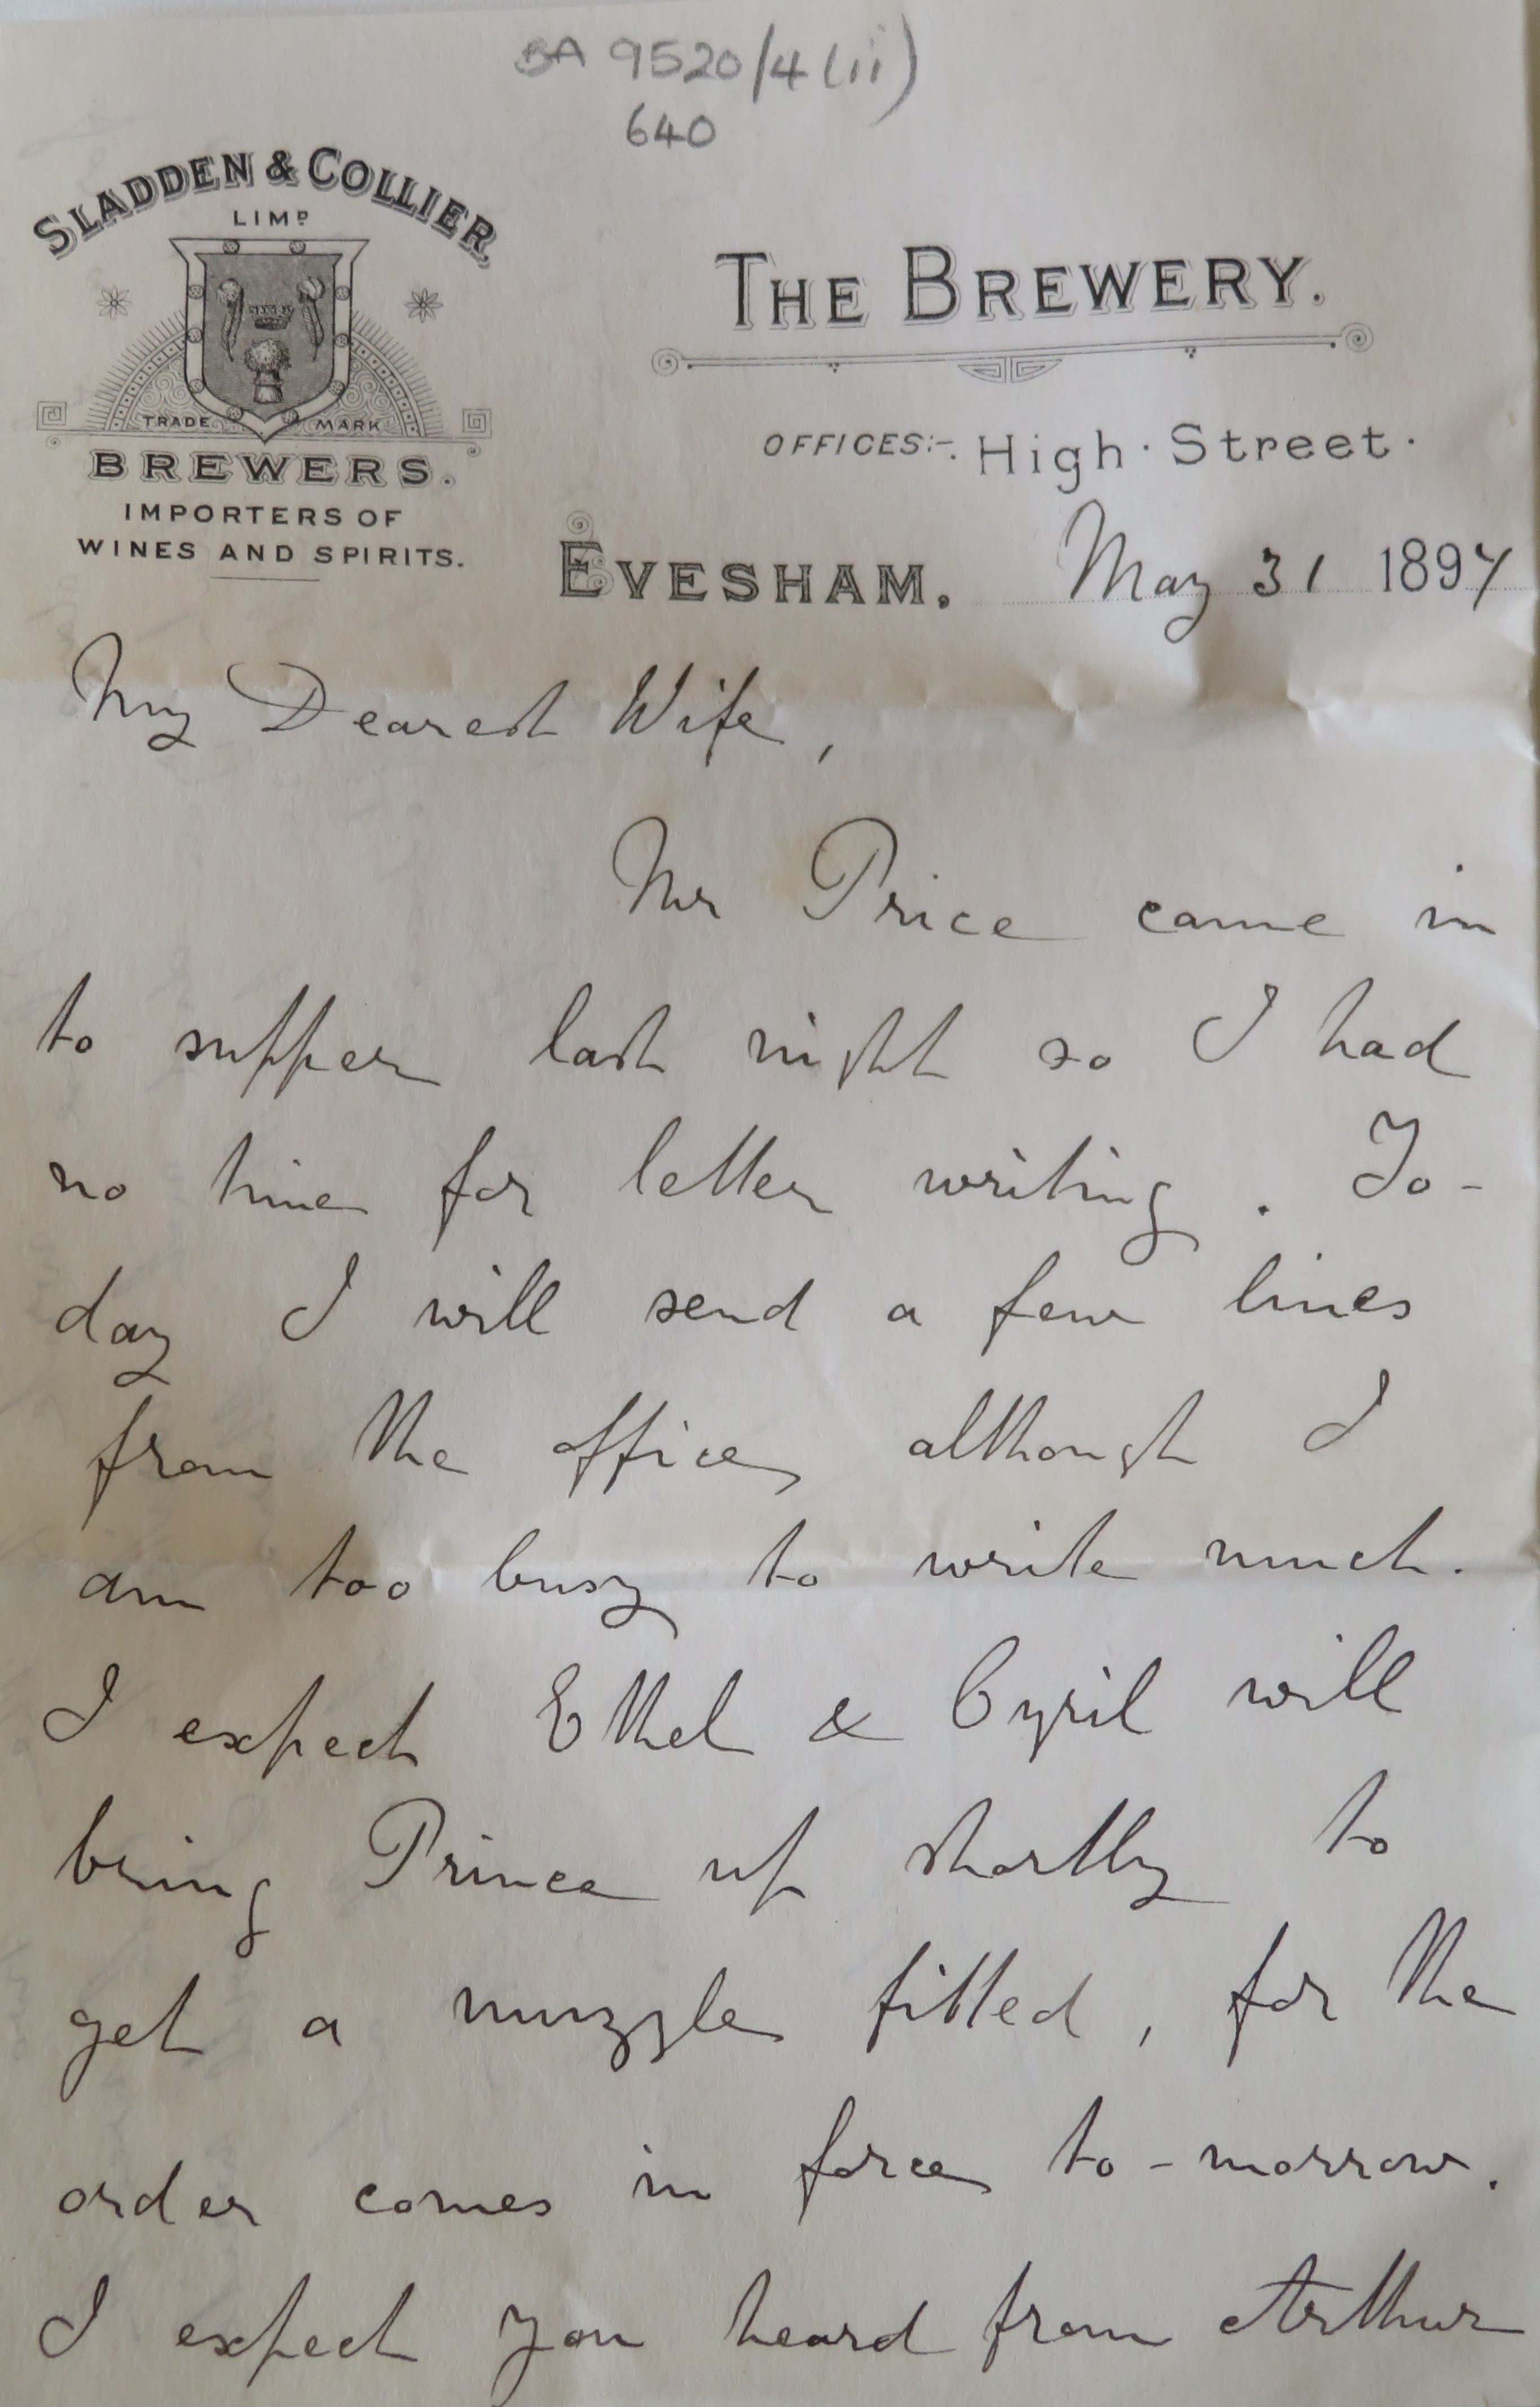 BA 9520/4(ii)
640
SLADDEN & COLLIER,
LIMD
TRADE MARK
BREWERS.
IMPORTERS OF
WINES AND SPIRITS.
THE BREWERY.
OFFICES:-. High · Street ·
EVESHAM. May 31 1897
My Dearest Wife,
Mr Price came in
to supper last night so I had
no time for letter writing. To-
day I will send a few lines
from the office, although I
am too busy to write much.
I expect Ethel & Cyril will
bring Prince up shortly to
get a muzzle fitted, for the
order comes in force to-morrow.
I expect you heard from Arthur